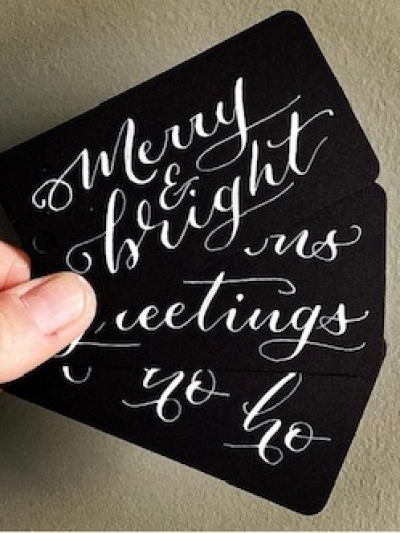 Merry
&
bright
ns
eetings
ho ho